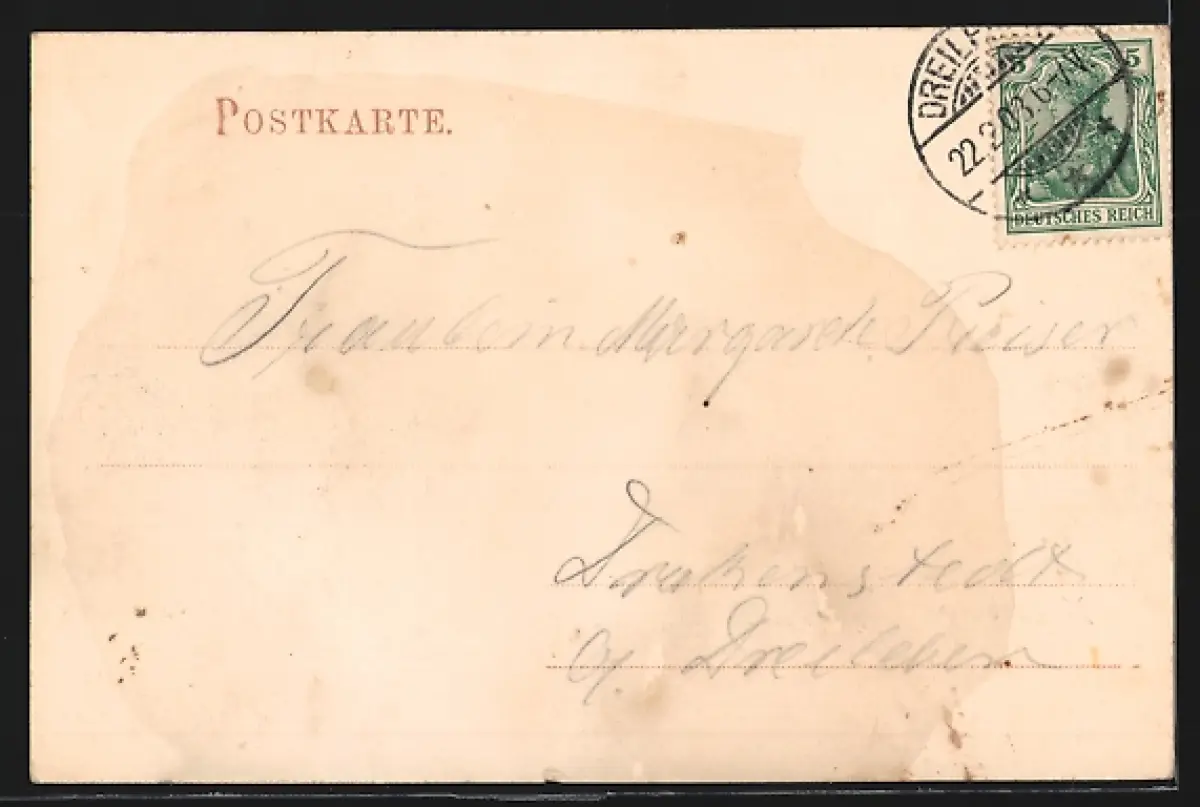 POSTKARTE.
DREIL
22.2.03.6-7N.
5 5
DEUTSCHES REICH
Fräulein Margareth
Drakenstedt
Dreileben